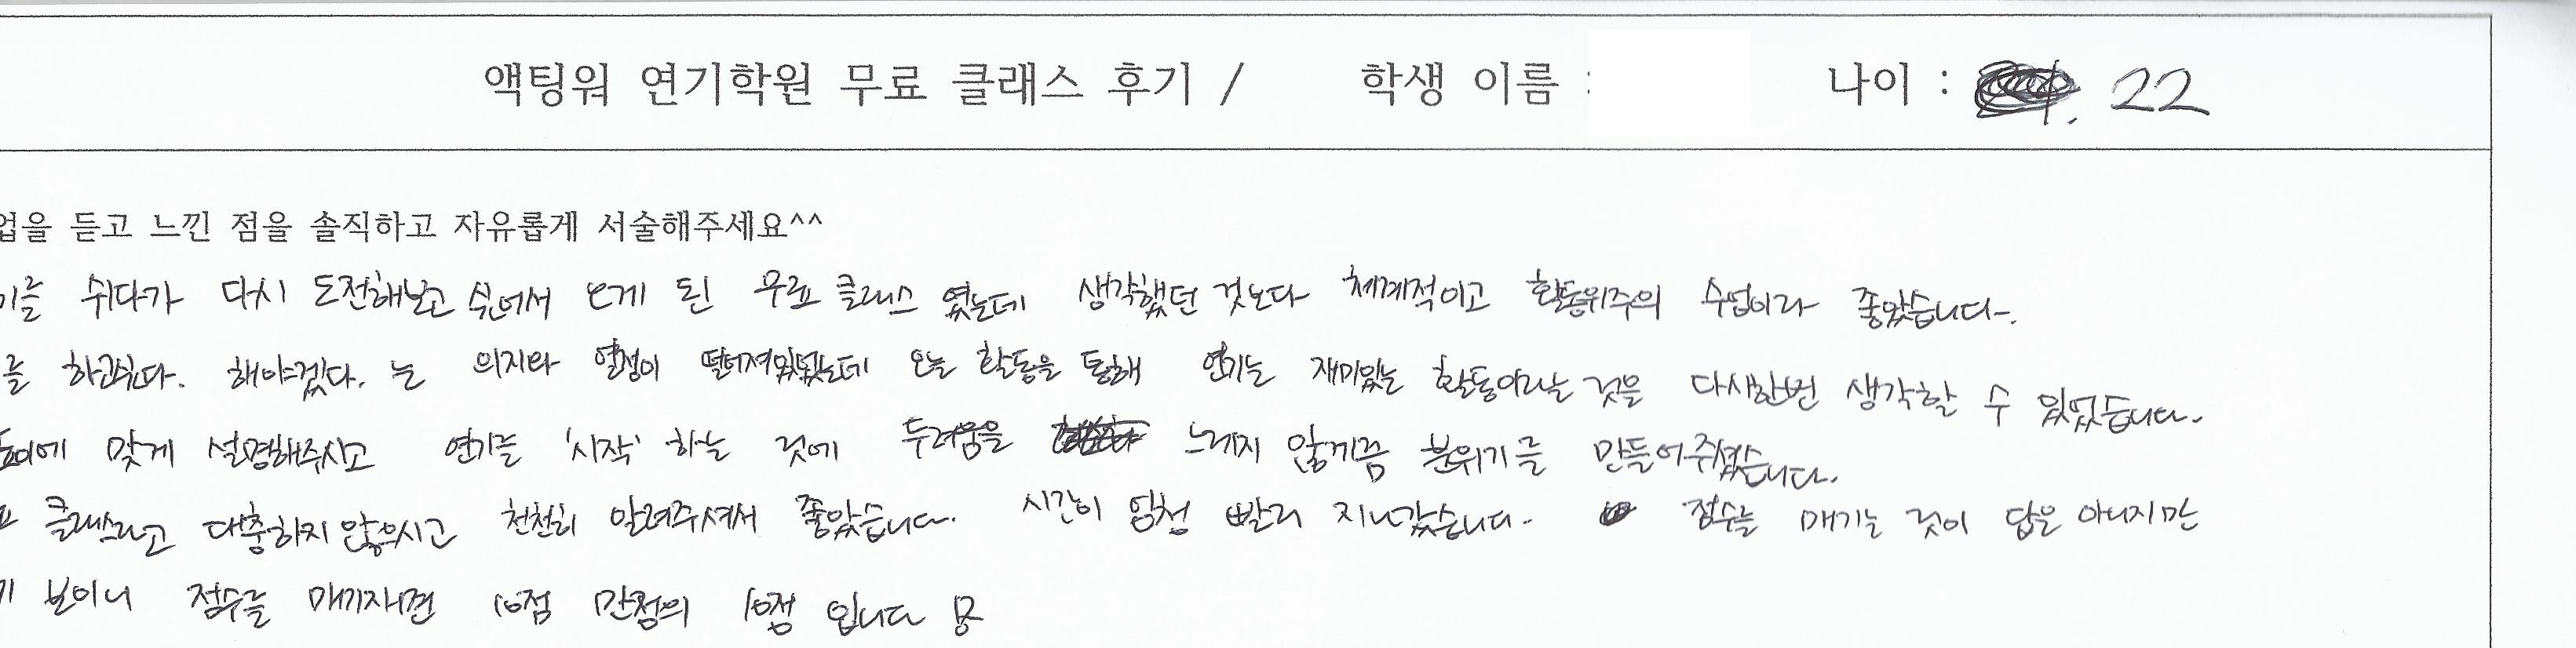 액팅워 연기학원 무료 클래스 후기 / 학생 이름 : 나이 : 22
업을 듣고 느낀 점을 솔직하고 자유롭게 서술해주세요^^
기를 쉬다가 다시 도전해보고 싶어서 오게 된 무료 클래스 였는데 생각했던 것보다 체계적이고 활동위주의 수업이라 좋았습니다.
를 하고싶다. 해야겠다. 는 의지와 열정이 떨어져있었는데 오늘 활동을 통해 연기는 재미있는 활동이라는 것을 다시한번 생각할 수 있었습니다.
맞게 설명해주시고 연기를 '시작' 하는 것에 두려움을 느끼지 않게끔 분위기를 만들어주셨습니다.
클래스라고 대충하지 않으시고 천천히 알려주셔서 좋았습니다. 시간이 엄청 빨리 지나갔습니다. 점수를 매기는 것이 답은 아니지만
기 보이니 점수를 매기자면 10점 만점의 10점 입니다